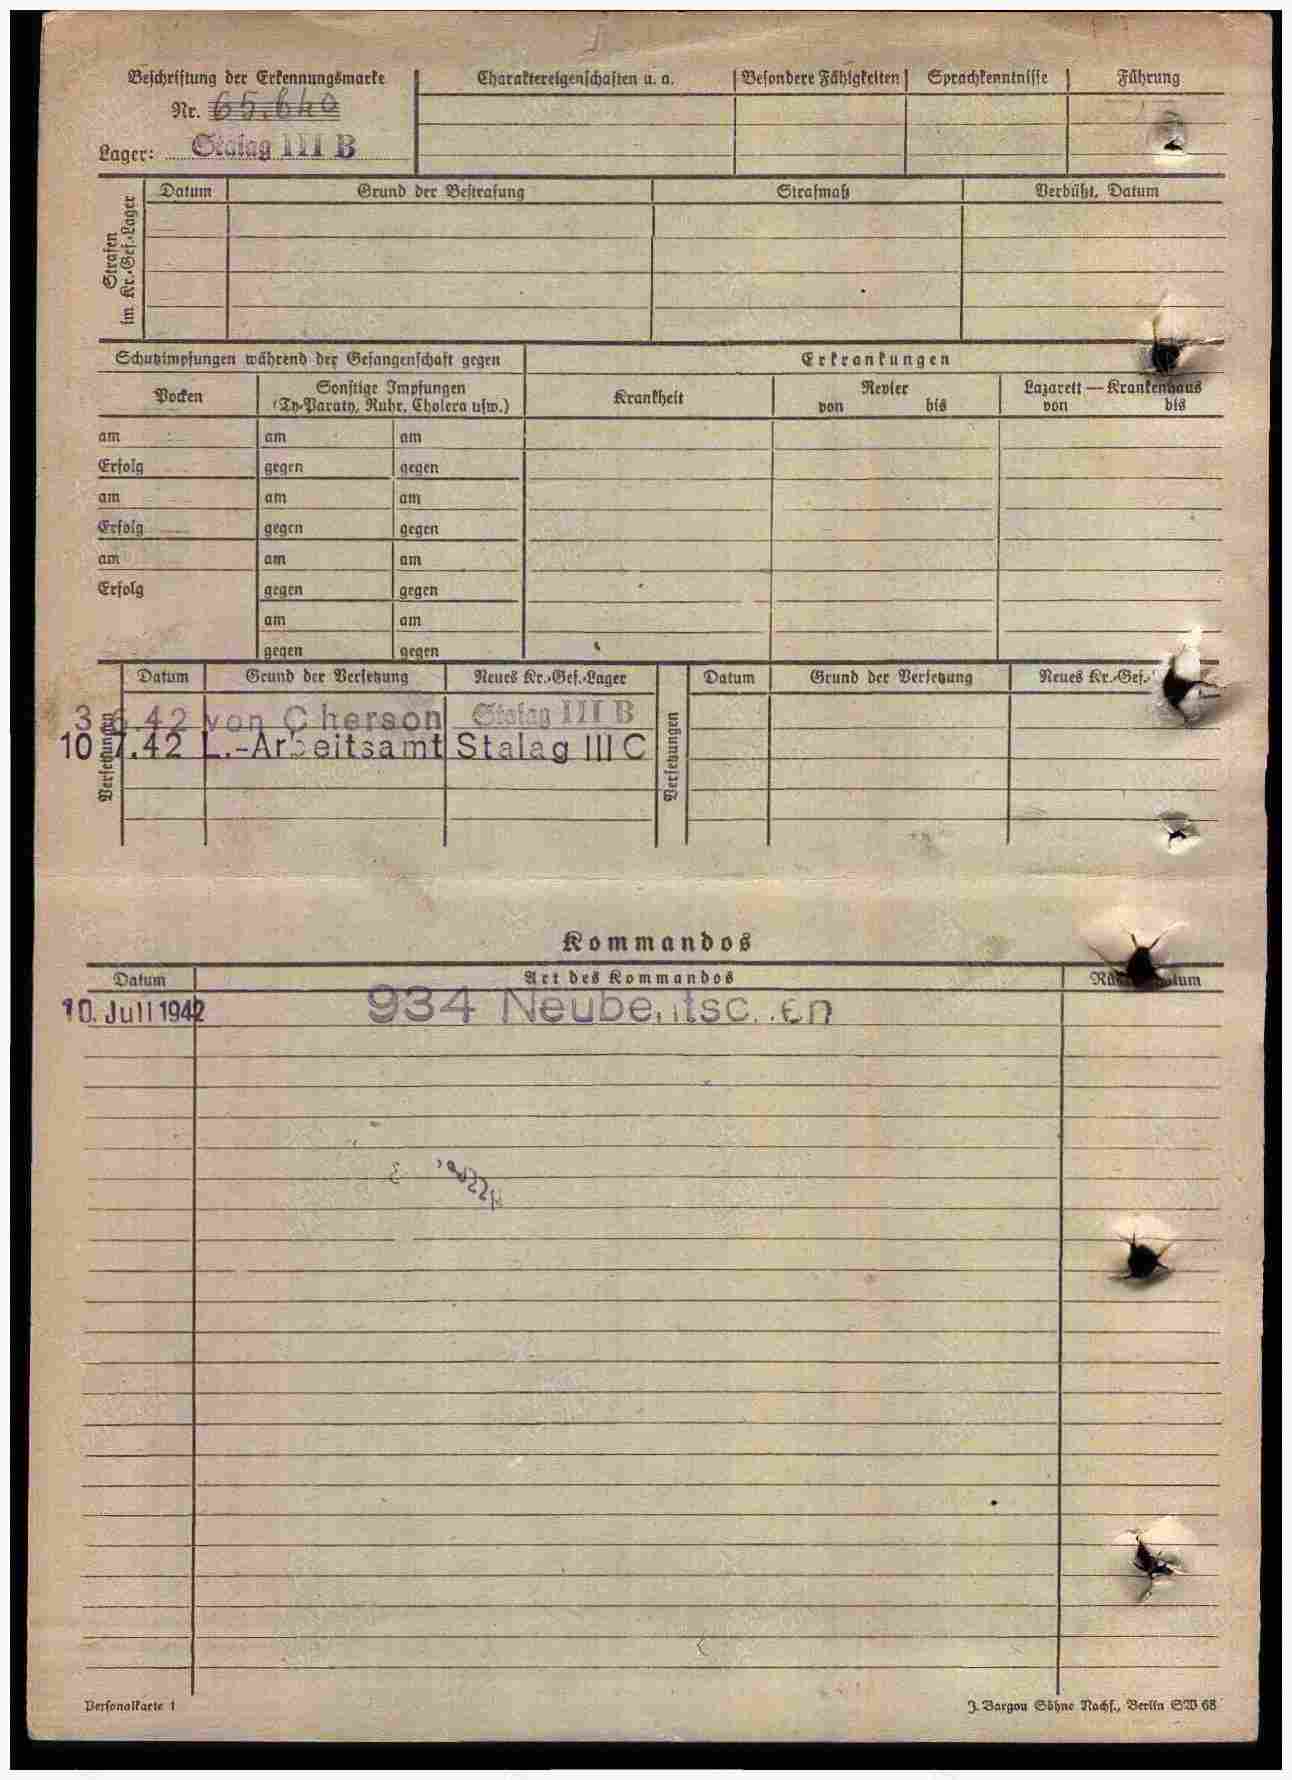 Beschriftung der Erkennungsmarke
Nr. 65.640
Lager: Stalag III B
Charaktereigenschaften u. a. Besondere Fähigkeiten Sprachkenntnisse Führung
Strafen
im Kr.-Gef.-Lager
Datum Grund der Bestrafung Strafmaß Verbüßt, Datum
Schutzimpfungen während der Gefangenschaft gegen Erkrankungen
Pocken
Sonstige Impfungen
(Ty-Paraty, Ruhr, Cholera usw.)
Krankheit
Revier
von bis
Lazarett — Krankenhaus
von bis
am am am
Erfolg gegen gegen
am am am
Erfolg gegen gegen
am am am
Erfolg gegen gegen
am am
gegen gegen
Versetzungen
Datum Grund der Versetzung Neues Kr.-Gef.-Lager
3 6.42 von Cherson Stalag III B
10 7.42 L.-Arbeitsamt Stalag III C
Versetzungen
Datum Grund der Versetzung Neues Kr.-Gef.-
Kommandos
Datum Art des Kommandos
10. Juli 1942 934
Personalkarte 1
J. Bargou Söhne Nachf., Berlin SW 68